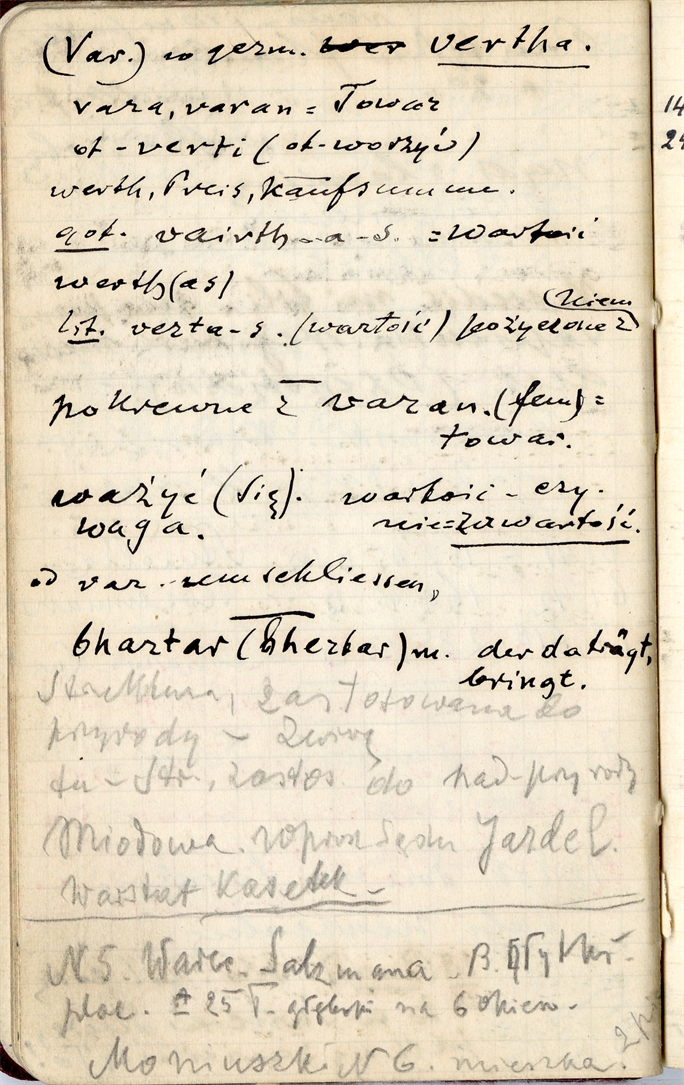 (Var.) w germ. wer vertha.
vara, varan = Towar
ot-verti (ot-worzyć)
werth, Preis, Kaufsumme.
got. vairth-a-s. = wartość
werth(as)
Niem
lit. verta-s. (wartość) pożyczone z
pokrewne z varan. (fem) =
towar.
ważyć (się). wartość - czy.
waga. nie = zawartość.
od var schliessen,
bhartar (bherbar) m. der da trägt,
bringt.
Struktura, zastosowana do
przyrody -
tu - Str., zastos. do nad-przyrody
Miodowa. wprost Sądu Jardel.
Warsztat Kasetek
N 5. Warec. Salzmana. B.
plac. 25 głęboki na 6 okien.
Moniuszki N 6. mieszka.
14
2